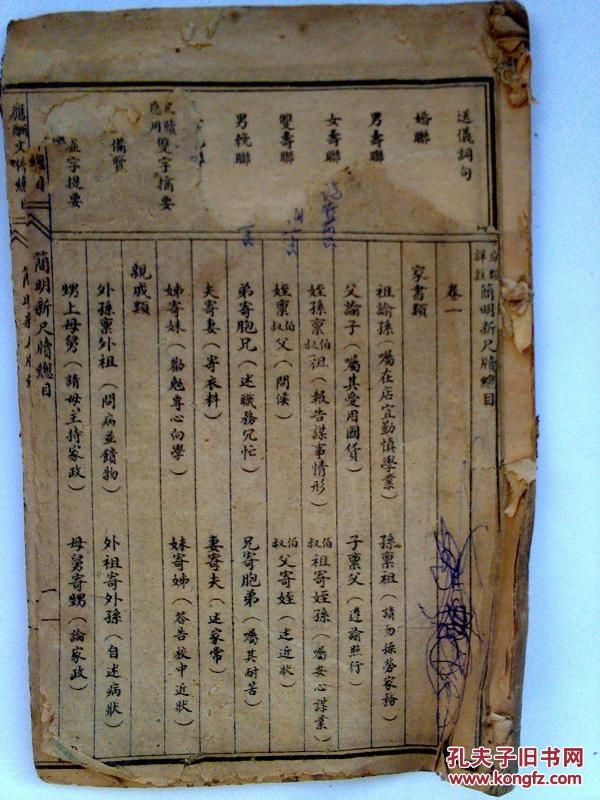 送儀詞句
婚聯
男壽聯
女壽聯
雙壽聯
男輓聯
尺牘應用雙字摘要
備覽
並字提要
總目
分類詳註簡明新尺牘總目
卷一
家書類
祖諭孫（囑在店宜勤慎學業）
孫稟祖（請勿操勞家務）
父諭子（囑其愛用國貨）
子稟父（遵諭照行）
姪孫稟伯叔祖（報告謀事情形）
伯叔祖寄姪孫（囑安心謀業）
姪稟伯叔父（問候）
伯叔父寄姪（述近狀）
弟寄胞兄（述職務冗忙）
兄寄胞弟（囑其耐苦）
夫寄妻（寄衣料）
妻寄夫（述家常）
姊寄妹（勸勉專心向學）
妹寄姊（答告校中近狀）
親戚類
外孫稟外祖（問病並饋物）
外祖寄外孫（自述病狀）
甥上母舅（請母主持家政）
母舅寄甥（論家政）
簡明新尺牘總目
一
孔夫子旧书网
kongfz.com